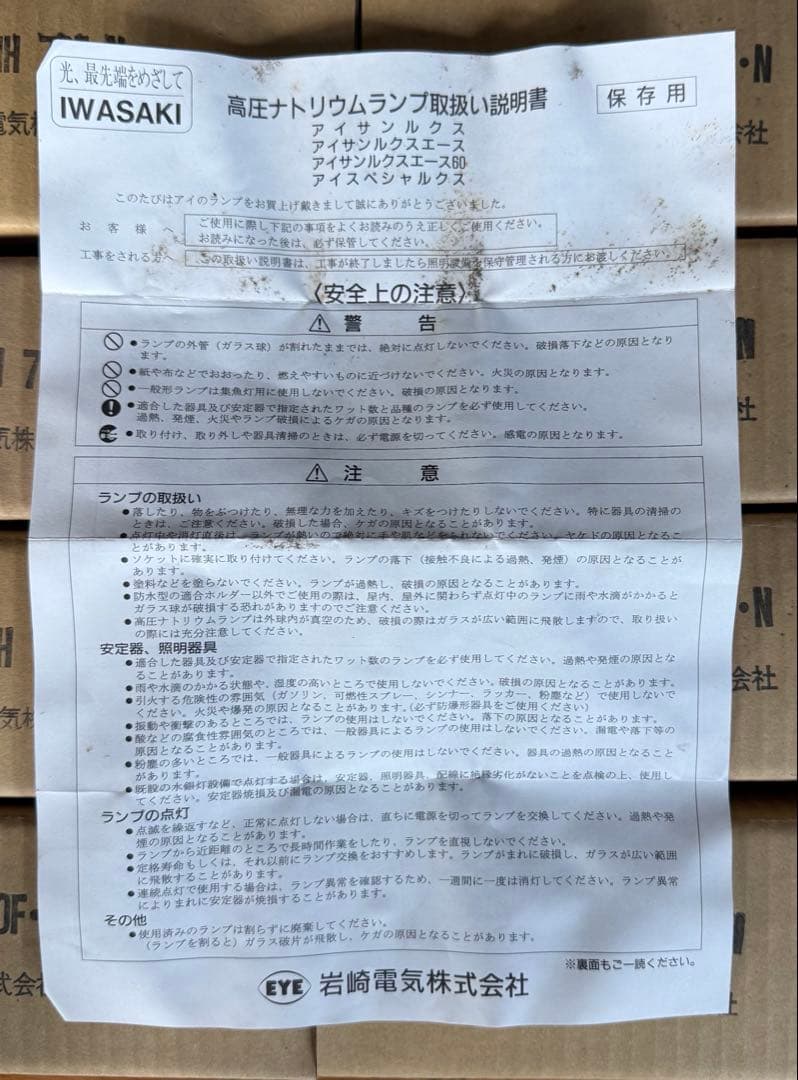 光、最先端をめざして
IWASAKI
高圧ナトリウムランプ取扱い説明書
保存用
アイサンルクス
アイサンルクスエース
アイサンルクスエース60
アイスペシャルクス
このたびはアイのランプをお買上げ戴きまして誠にありがとうございました。
お客様へ
ご使用に際し下記の事項をよくお読みのうえ正しくご使用ください。
お読みになった後は、必ず保管してください。
工事をされる方へ
この取扱い説明書は、工事が終了しましたら照明設備を保守管理される方にお渡しください。
〈安全上の注意〉
警告
●ランプの外管（ガラス球）が割れたままでは、絶対に点灯しないでください。破損落下などの原因となり
ます。
●紙や布などでおおったり、燃えやすいものに近づけないでください。火災の原因となります。
●一般形ランプは集魚灯用に使用しないでください。破損の原因となります。
●適合した器具及び安定器で指定されたワット数と品種のランプを必ず使用してください。
過熱、発煙、火災やランプ破損によるケガの原因となります。
●取り付け、取り外しや器具清掃のときは、必ず電源を切ってください。感電の原因となります。
注意
ランプの取扱い
●落したり、物をぶつけたり、無理な力を加えたり、キズをつけたりしないでください。特に器具の清掃の
ときは、ご注意ください。破損した場合、ケガの原因となることがあります。
●点灯中や消灯直後は、ランプが熱いので絶対に手や肌などをふれないでください。ヤケドの原因となるこ
とがあります。
●ソケットに確実に取り付けてください。ランプの落下（接触不良による過熱、発煙）の原因となることが
あります。
●塗料などを塗らないでください。ランプが過熱し、破損の原因となることがあります。
●防水型の適合ホルダー以外でご使用の際は、屋内、屋外に関わらず点灯中のランプに雨や水滴がかかると
ガラス球が破損する恐れがありますのでご注意ください。
●高圧ナトリウムランプは外球内が真空のため、破損の際はガラスが広い範囲に飛散しますので、取り扱い
の際には充分注意してください。
安定器、照明器具
●適合した器具及び安定器で指定されたワット数のランプを必ず使用してください。過熱や発煙の原因とな
ることがあります。
●雨や水滴のかかる状態や、湿度の高いところで使用しないでください。破損の原因となることがあります。
●引火する危険性の雰囲気（ガソリン、可燃性スプレー、シンナー、ラッカー、粉塵など）で使用しないで
ください。火災や爆発の原因となることがあります。（必ず防爆形器具をご使用ください）
●振動や衝撃のあるところでは、ランプの使用はしないでください。落下の原因となることがあります。
●酸などの腐食性雰囲気のところでは、一般器具によるランプの使用はしないでください。漏電や落下等の
原因となることがあります。
●粉塵の多いところでは、一般器具によるランプの使用はしないでください。器具の過熱の原因となること
があります。
●既設の水銀灯設備で点灯する場合は、安定器、照明器具、配線に絶縁劣化がないことを点検の上、使用し
てください。安定器焼損及び漏電の原因となることがあります。
ランプの点灯
●点滅を繰返すなど、正常に点灯しない場合は、直ちに電源を切ってランプを交換してください。過熱や発
煙の原因となることがあります。
●ランプから近距離のところで長時間作業をしたり、ランプを直視しないでください。
●定格寿命もしくは、それ以前にランプ交換をおすすめします。ランプがまれに破損し、ガラスが広い範囲
に飛散することがあります。
●連続点灯で使用する場合は、ランプ異常を確認するため、一週間に一度は消灯してください。ランプ異常
によりまれに安定器が焼損することがあります。
その他
●使用済みのランプは割らずに廃棄してください。
（ランプを割ると）ガラス破片が飛散し、ケガの原因となることがあります。
※裏面もご一読ください。
EYE 岩崎電気株式会社